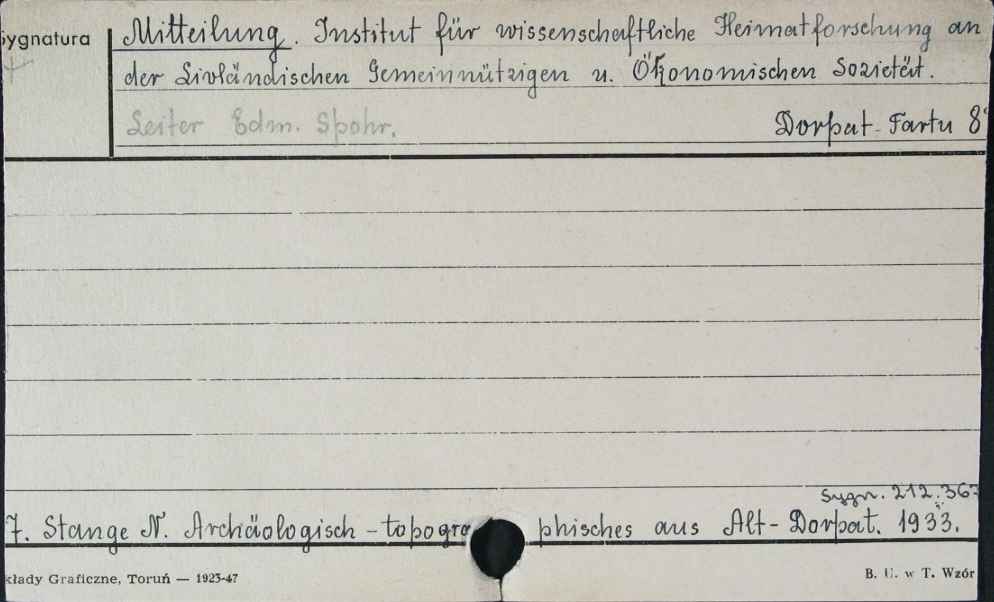 Sygnatura
Mitteilung. Institut für wissenschaftliche Heimatforschung an
der Livländischen Gemeinnützigen u. Ökonomischen Sozietät.
Leiter Edm. Spohr.
Dorpat-Tartu 8°
Sygn. 212.367
7. Stange N. Archäologisch-topographisches aus Alt-Dorpat. 1933.
kłady Graficzne, Toruń — 1923-47
B. U. w T. Wzór